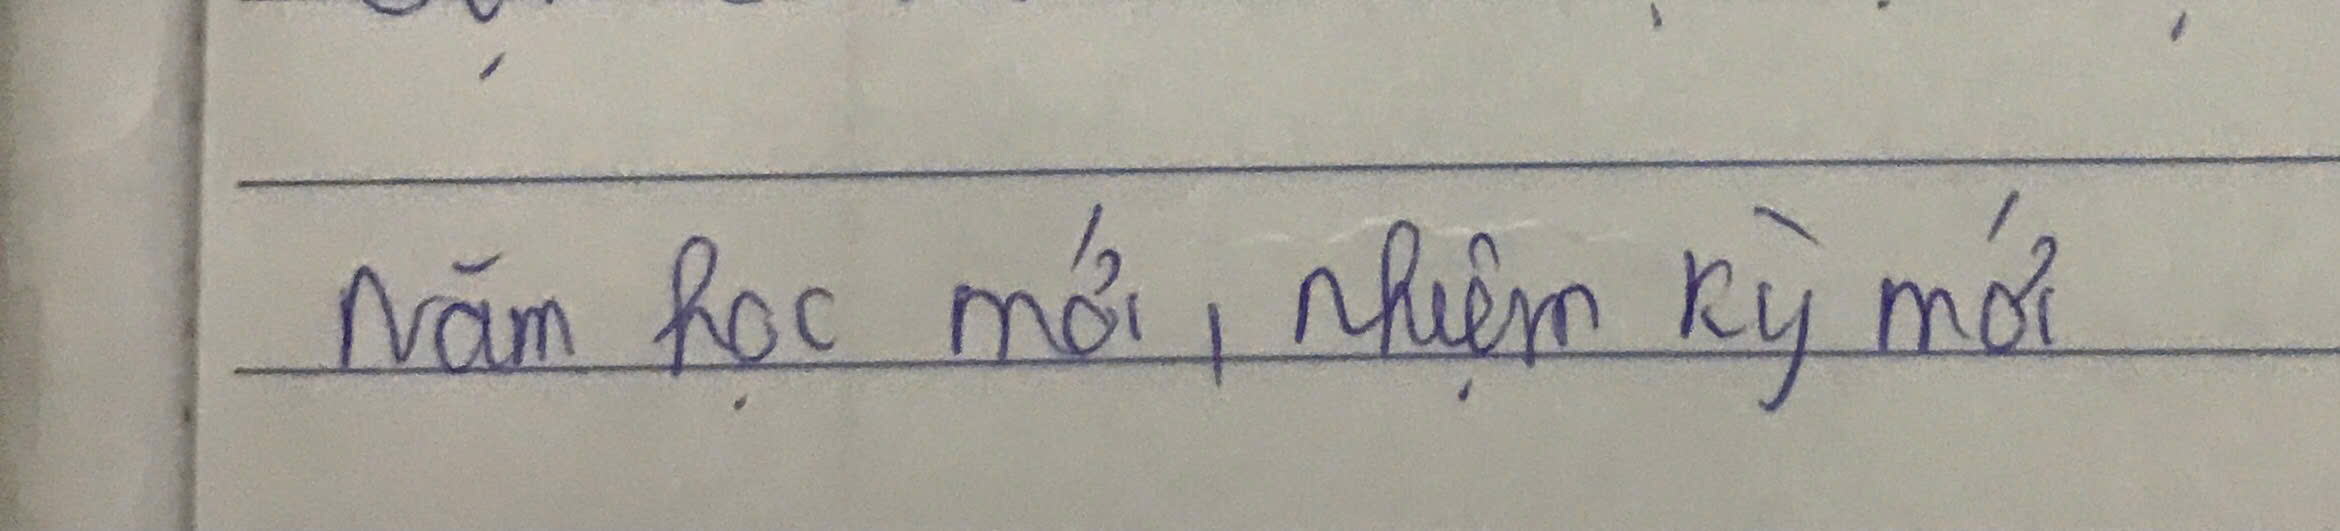 Năm học mới, nhiệm kỳ mới